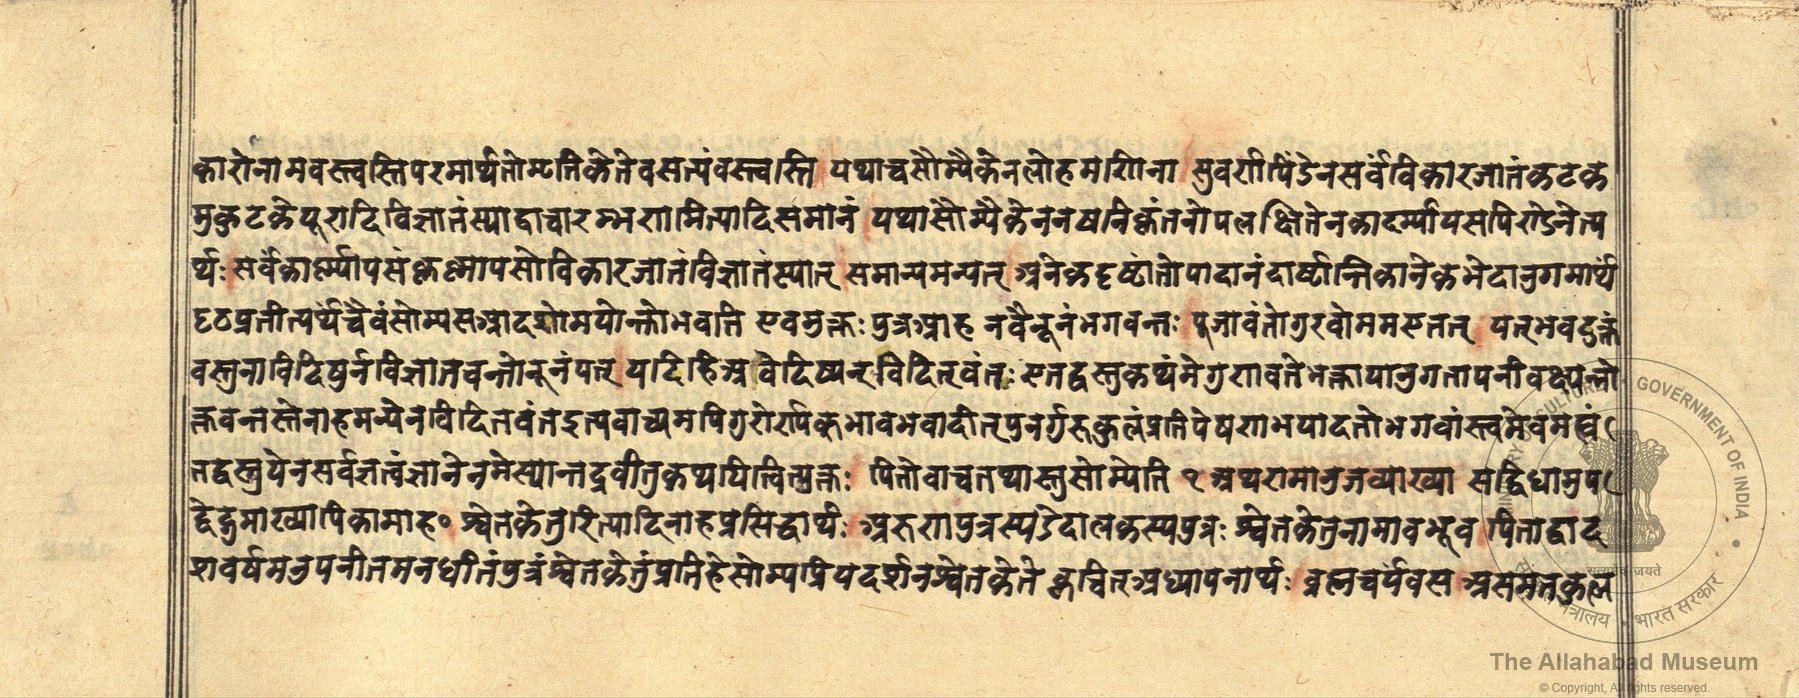 कारोनामवस्त्वस्तिपरमार्थतोमृत्तिकेत्येवसत्यंवस्त्वस्ति यथाचसौम्यैकेनलोहमणिना सुवर्णपिंडेनसर्वंविकारजातंकटक
मुकुटकेयूरादिविज्ञातंस्याद्वाचारम्भणमित्यादिसमानं यथासौम्यैकेननखनिकृंतनेनोपलक्षितेनकार्ष्णायसपिंडेनेत्य
र्थः सर्वंकार्ष्णायसंकृष्णायसोविकारजातंविज्ञातंस्यात् समानमन्यत् अनेकदृष्टांतोपादानंदार्ष्टान्तिकानेकभेदानुगमार्थं
दृढप्रतीत्यर्थंचैवंसोम्यसआदेशोमयोक्तोभवति एवमुक्तः पुत्रआह नवैनूनंभगवन्तः पूजावंतोगुरवोममएतत् यत्भवदुक्तं
वस्तुनाविदिषुर्नविज्ञातवन्तोनूनंयत् यदिहिअवेदिष्यन्विदितवंतः एतद्वस्तुकथंमेगुणवतेभक्तायानुगतायनावक्ष्यन्नो
क्तवन्तस्तेनाहमन्येनविदितवंतइत्यवाच्यमपिगुरोर्न्यग्भावमवादीत्पुनर्गुरुकुलंप्रतिप्रेषणभयादतोभगवांस्त्वमेवमह्यं
तद्वस्तुयेनसर्वज्ञत्वंज्ञानेनमेस्यात्तद्ब्रवीतुकथयत्वित्युक्तः पितोवाचतथास्तुसोम्येति १ अथरामानुजव्याख्या सद्विद्यामुप
द्देष्टुमाख्यायिकामाह० श्वेतकेतुरित्यादिनाहप्रसिद्धार्थः अरुणपुत्रस्यउद्दालकस्यपुत्रः श्वेतकेतुनामाबभूव पिताद्वाद
शवर्षमनुपनीतमनधीतंपुत्रंश्वेतकेतुंप्रतिहेसोम्यप्रियदर्शनश्वेतकेतो क्वचित्अध्यापनार्थः ब्रह्मचर्यंवस अस्मत्कुल
The Allahabad Museum
© Copyright, All rights reserved.
GOVERNMENT OF INDIA
सत्यमेव जयते
भारत सरकार